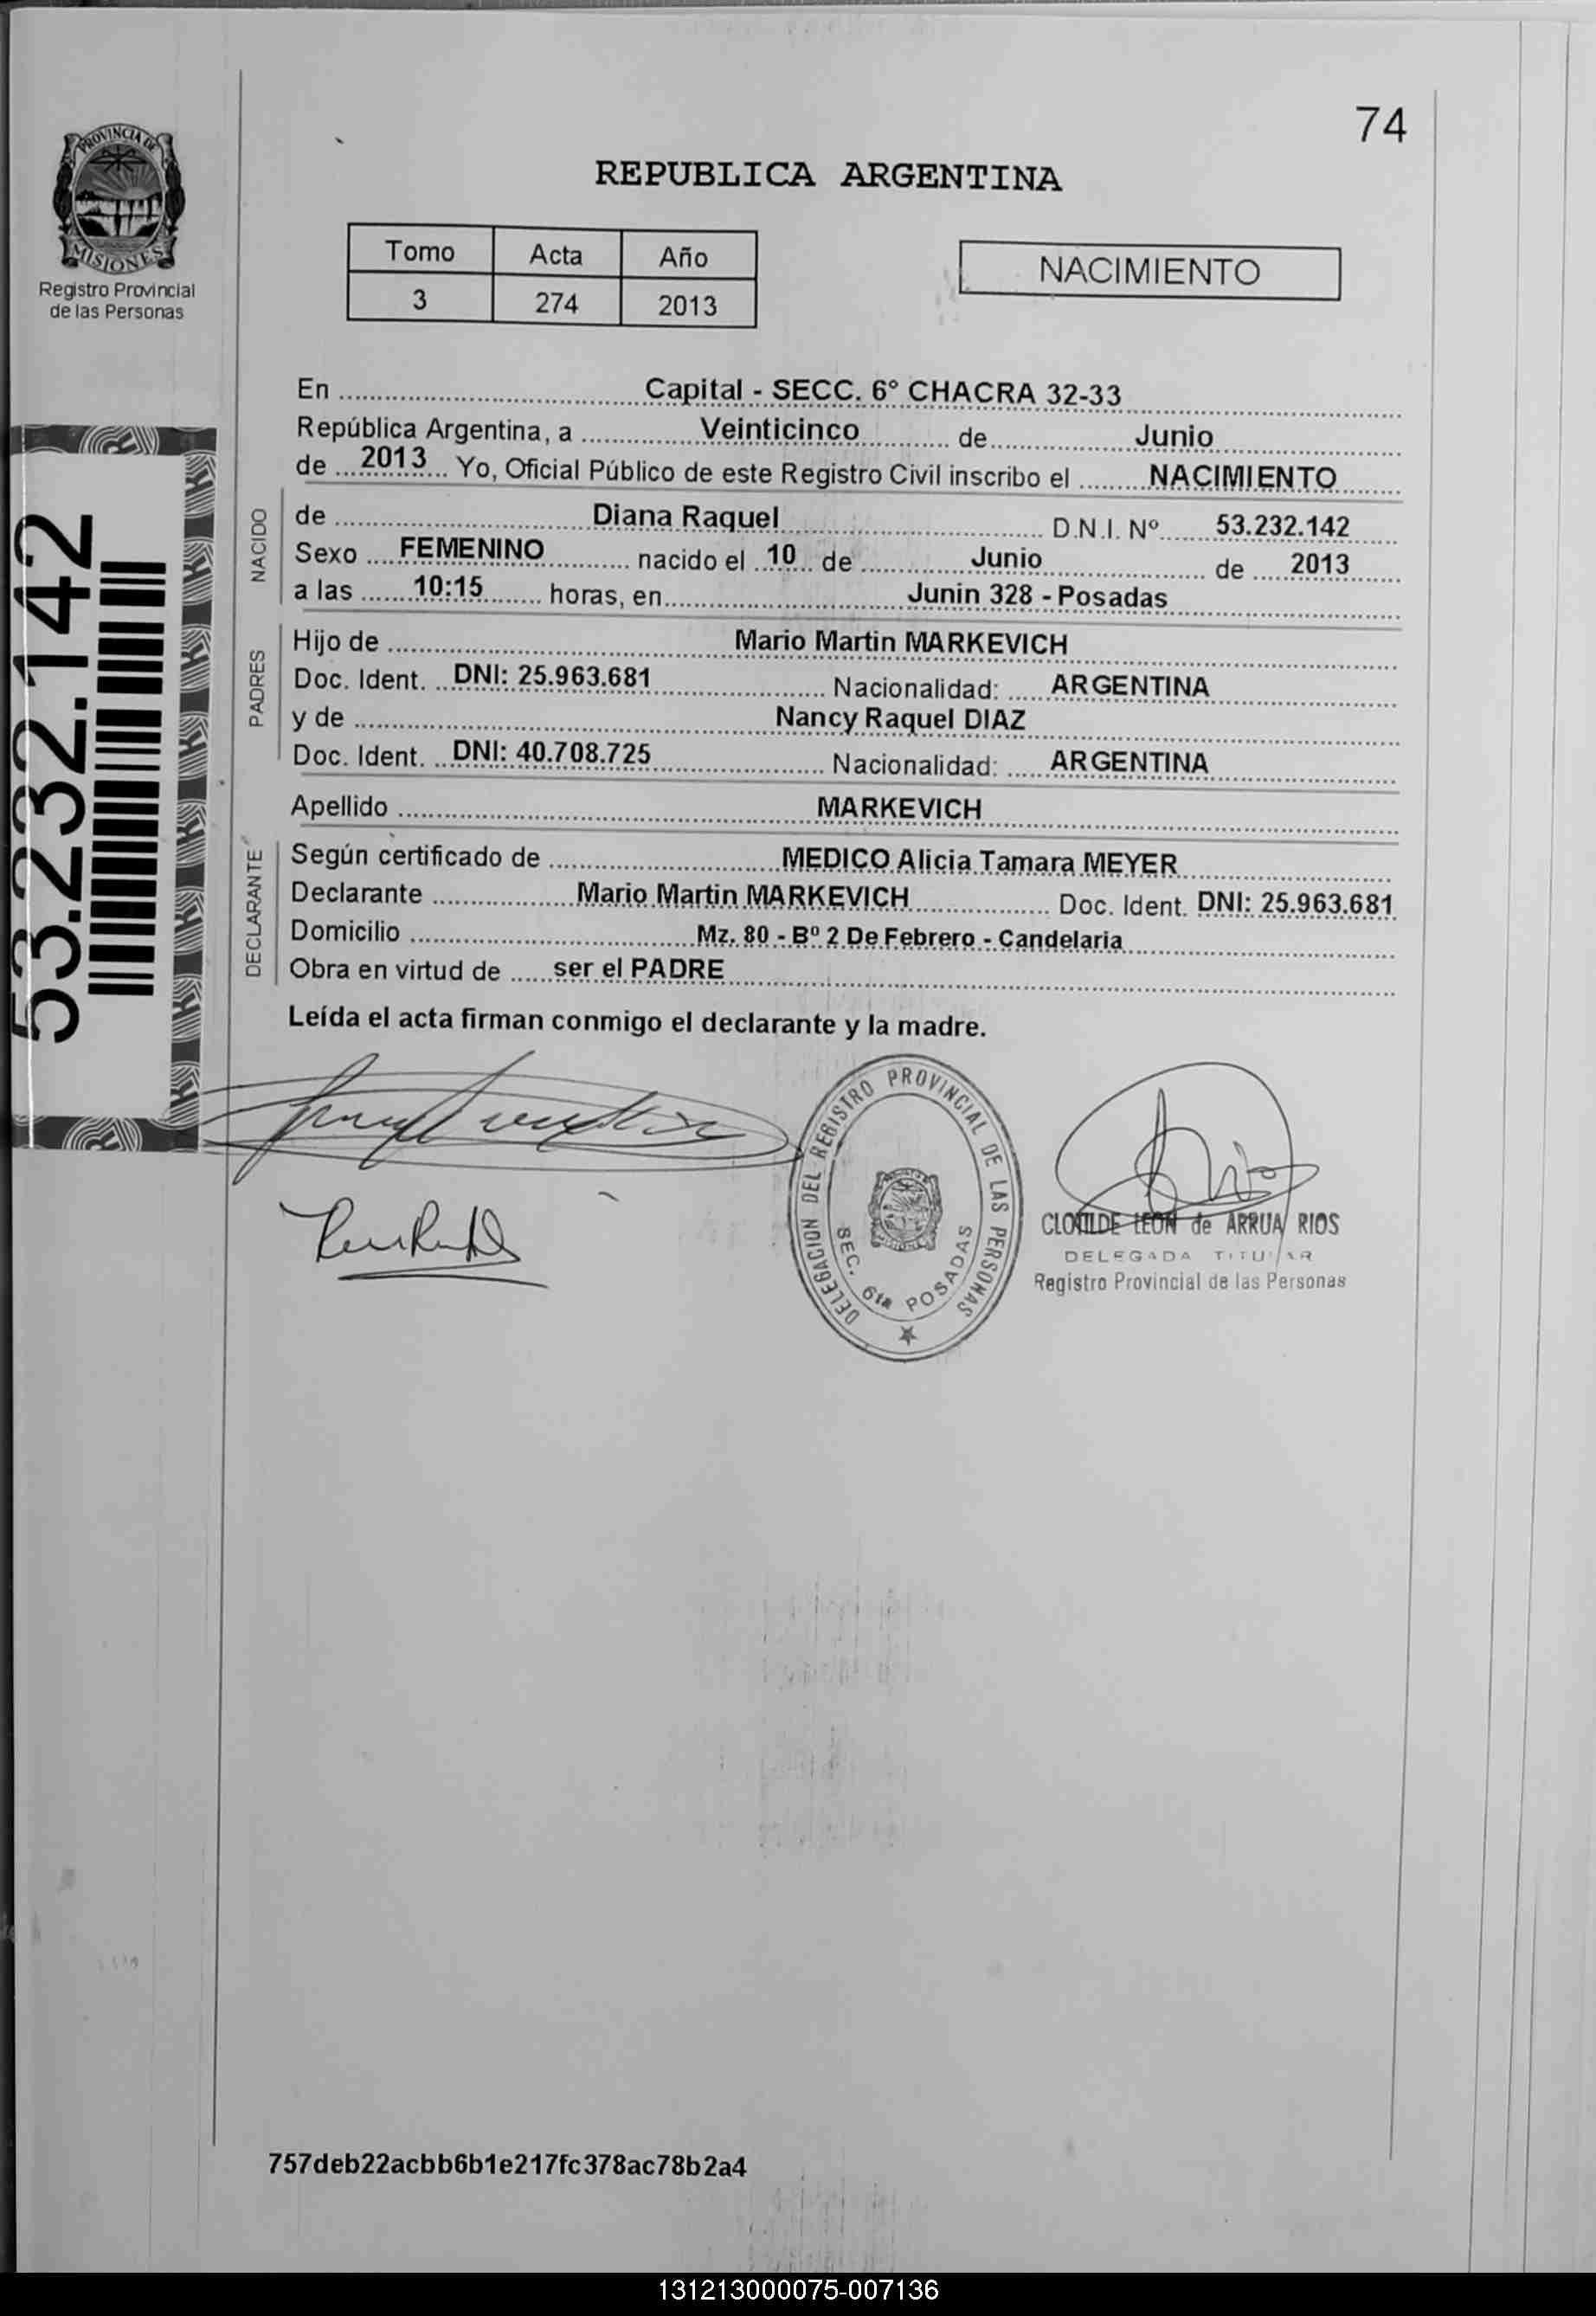 74
PROVINCIA DE
MISIONES
Registro Provincial
de las Personas
REPUBLICA ARGENTINA
Tomo Acta Año
3 274 2013
NACIMIENTO
53.232.142
En Capital - SECC. 6º CHACRA 32-33
República Argentina, a Veinticinco de Junio
de 2013 Yo, Oficial Público de este Registro Civil inscribo el NACIMIENTO
NACIDO
de Diana Raquel D.N.I. Nº 53.232.142
Sexo FEMENINO nacido el 10 de Junio de 2013
a las 10:15 horas, en Junin 328 - Posadas
PADRES
Hijo de Mario Martin MARKEVICH
Doc. Ident. DNI: 25.963.681 Nacionalidad: ARGENTINA
y de Nancy Raquel DIAZ
Doc. Ident. DNI: 40.708.725 Nacionalidad: ARGENTINA
Apellido MARKEVICH
DECLARANTE
Según certificado de MEDICO Alicia Tamara MEYER
Declarante Mario Martin MARKEVICH Doc. Ident. DNI: 25.963.681
Domicilio Mz. 80 - Bº 2 De Febrero - Candelaria
Obra en virtud de ser el PADRE
Leída el acta firman conmigo el declarante y la madre.
DELEGACION DEL REGISTRO PROVINCIAL DE LAS PERSONAS
SEC. 6ta POSADAS
CLOTILDE LEON de ARRUA RIOS
DELEGADA TITULAR
Registro Provincial de las Personas
757deb22acbb6b1e217fc378ac78b2a4
131213000075-007136